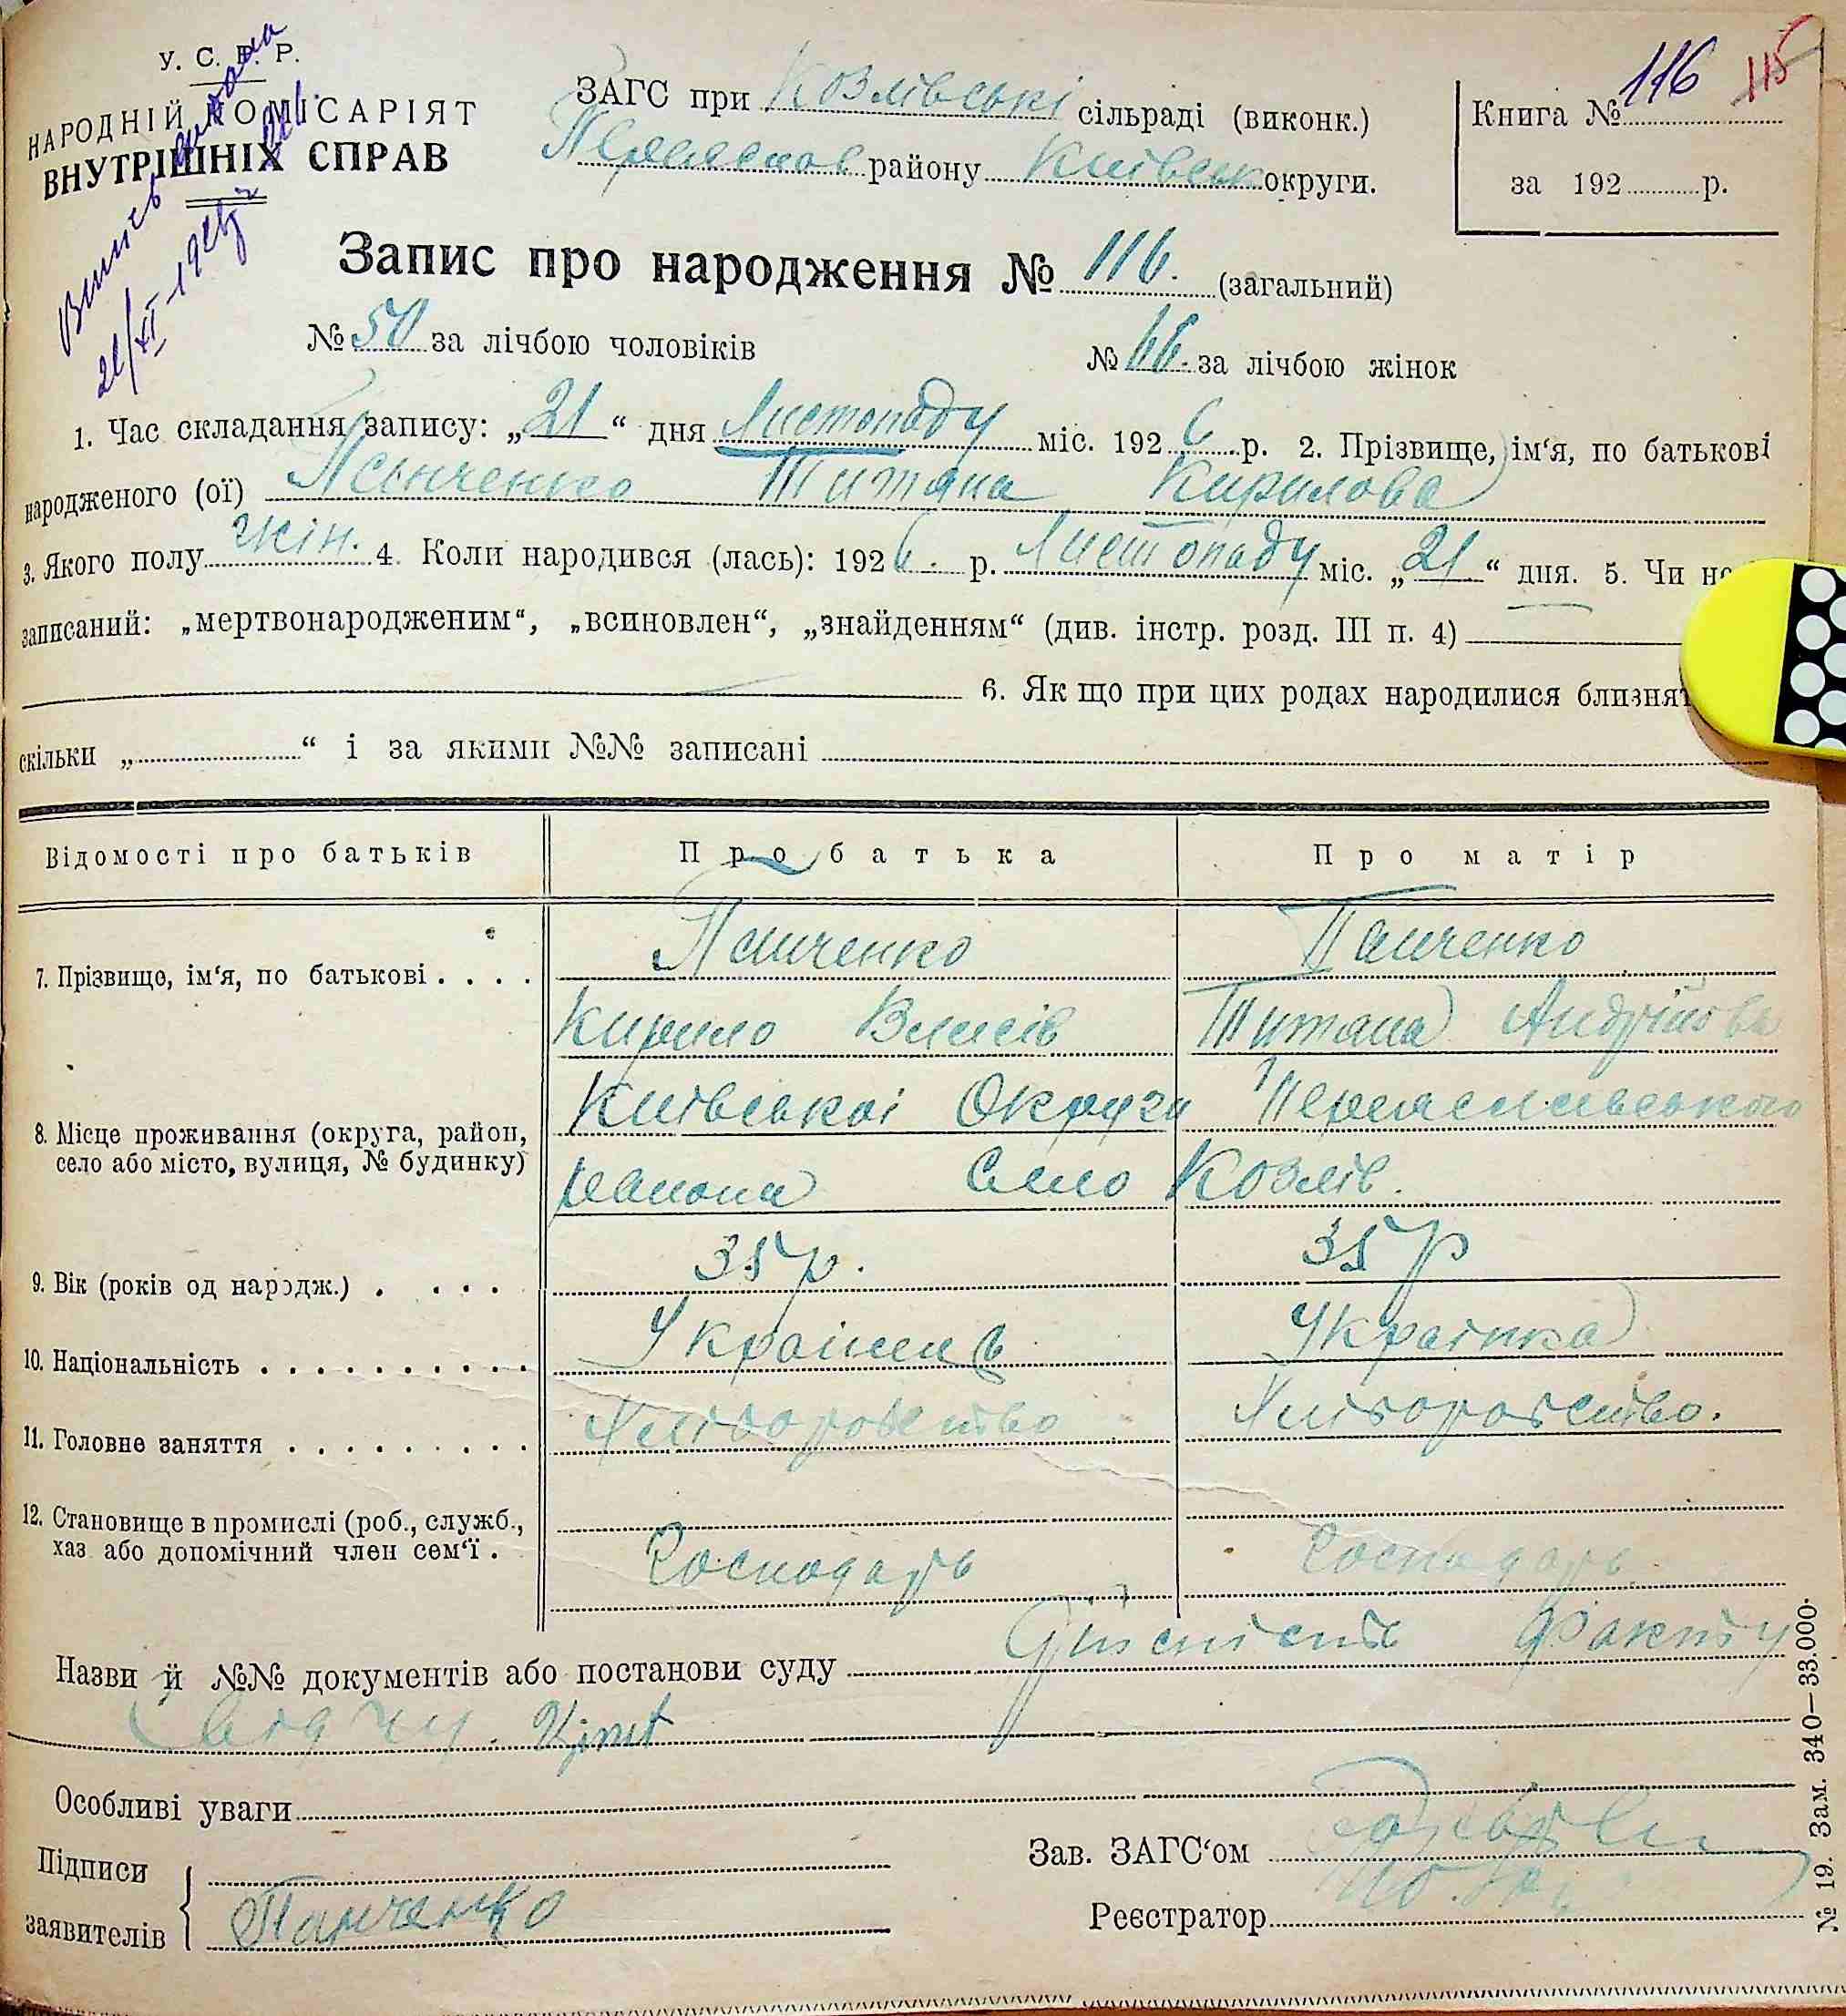 У. С. Р. Р.
НАРОДНІЙ КОМІСАРІЯТ
ВНУТРІШНІХ СПРАВ
Випись видана
21/XI-1926
ЗАГС при Козлівські сільраді (виконк.)
Переяслов району Київськ округи.
Книга № 116 115
за 192 р.
Запис про народження № 116. (загальний)
№ 50 за лічбою чоловіків № 66. за лічбою жінок
1. Час складання запису: „21“ дня Листопаду міс. 1926 р. 2. Прізвище, ім‘я, по батькові
народженого (ої) Панченко Титяна Кирилова
3. Якого полу жін. 4. Коли народився (лась): 1926. р. Листопаду міс. „21“ дня. 5. Чи не
записаний: „мертвонародженим“, „всиновлен“, „знайденням“ (див. інстр. розд. III п. 4)
6. Як що при цих родах народилися близнят
скільки „ “ і за якими №№ записані
Відомості про батьків Про батька Про матір
7. Прізвище, ім‘я, по батькові . . . . Панченко Панченко
Кирило Власів Титяна Андрійова
8. Місце проживання (округа, район, село або місто, вулиця, № будинку) Київської Округи Переяславського
района Село Козлів.
9. Вік (років од народж.) . . . . 35 р. 35 р
10. Національність . . . . . . . . . . Українец Українка
11. Головне заняття . . . . . . . . . Хліборобство Хліборобство.
12. Становище в промислі (роб., служб., хаз або допомічний член сем‘ї . Господарь Господарь.
Назви й №№ документів або постанови суду Дійсність Факту
Свідчу.
Особливі уваги
Підписи
заявителів Панченко
Зав. ЗАГС‘ом
Реєстратор
№ 19. Зам. 340—33.000.